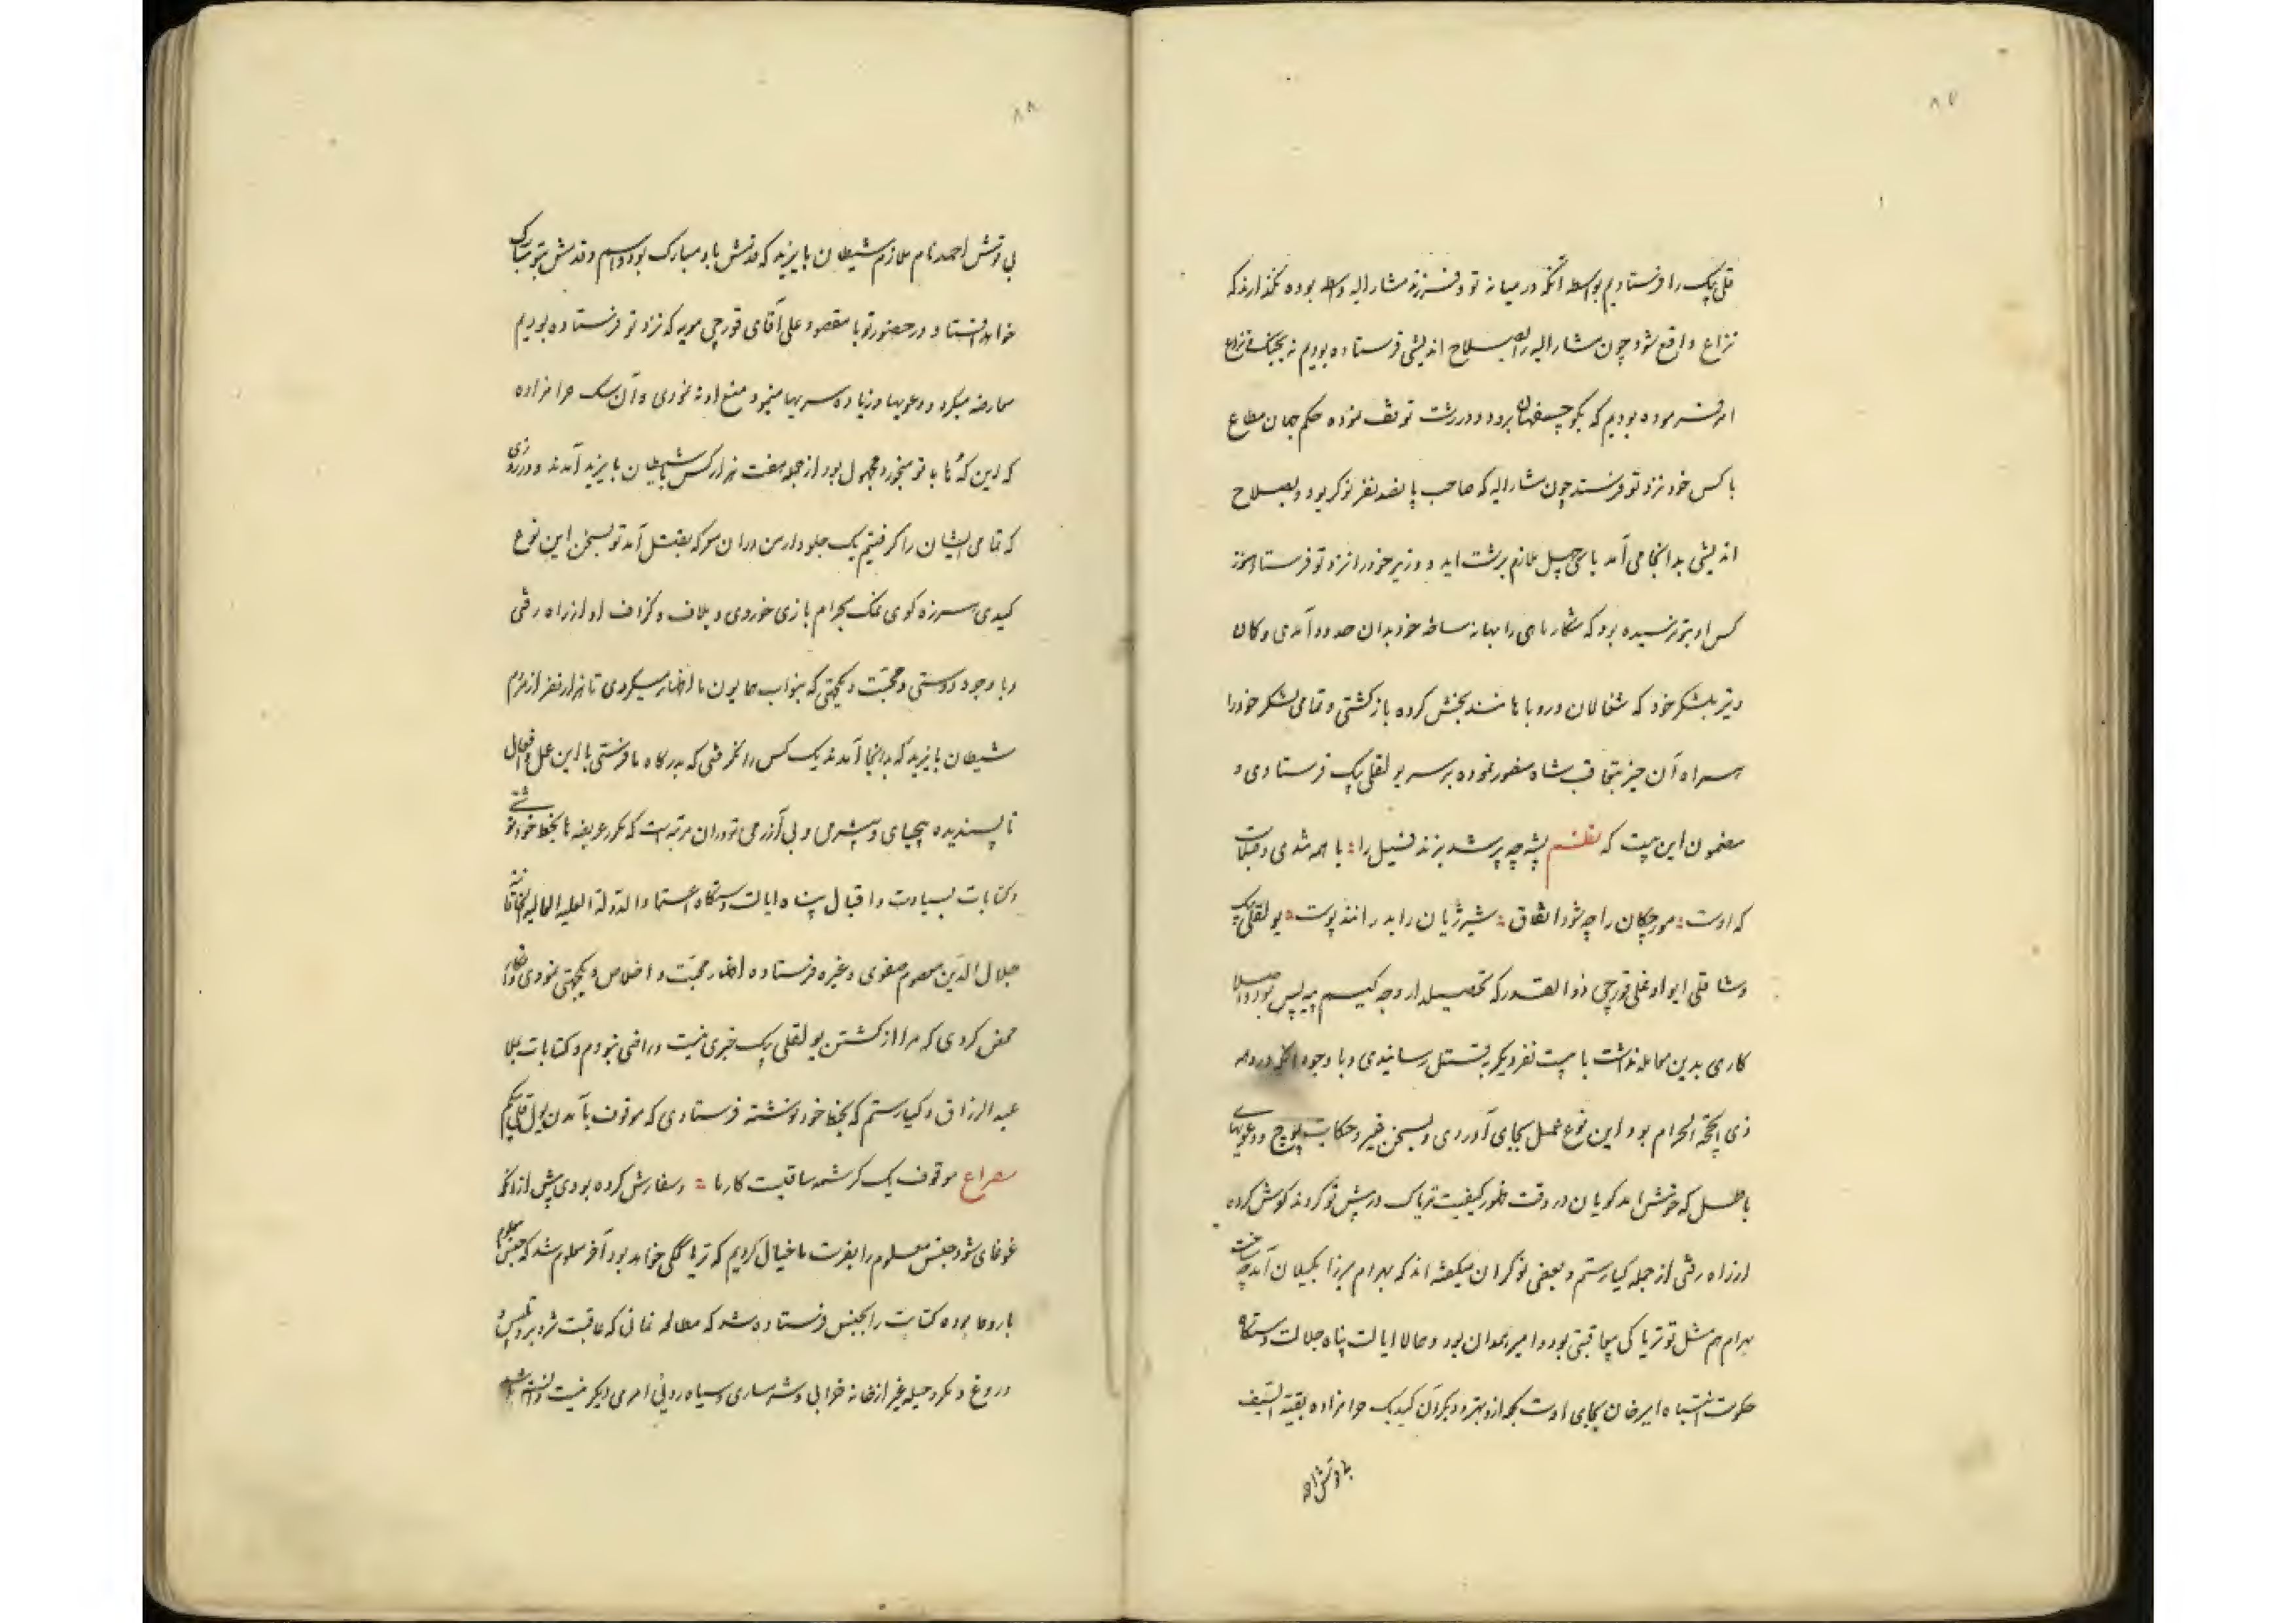 ۸۷
قلی بیک را فرستادیم بواسطه آنکه در میانه تو و فرزند مشارالیه واسطه بوده نگذارند که
نزاع واقع شود چون مشارالیه را بصلاح اندیشی فرستاده بودیم نه بجنگ و نزاع
امر فرموده بودیم که بکوچسفهان برود و در رشت توقف نموده حکم جهان مطاع
با کس خود نزد تو فرستد چون مشارالیه که صاحب پانصد نفر نوکر بود و بصلاح
اندیشی بدانجا می آمد با سی چهل ملازم برشت آید و وزیر خود را نزد تو فرستاد هنوز
کس او بتو نرسیده بود که شکار ماهی را بهانه ساخته خود بدان حدود آمدی و کان
دیز بلشکر خود که شغالان و روباهانند بخش کرده بازگشتی و تمامی لشکر خود را
همراه آن حیز بتعاقب شاه منصور نموده بر سر بولقلی بیک فرستادی و
مضمون این بیت که نظم پشه چو پر شد بزند فیل را : با همه تندی و صلابت
که اوست : مورچگان را چو شود اتفاق : شیر ژیان را بدرانند پوست : بولقلی بیک
و شاه قلی ایواوغلی قورچی ذوالقدر که تحصیلدار وجه کیسم بیه پس بود و اصلا
کاری بدین معامله نداشت با بیست نفر دیگر بقتل رسانیدی و با وجود آنکه در دهه
ذی الحجة الحرام بود این نوع عمل بجای آوردی و بسخن غیر و حکایت پوچ و دعویهای
باطل که خوش آمد گویان در وقت ظهور کیفیت تریاک در پیش تو کردند گوش کرده
از راه رفتی از جمله کیارستم و بعضی نوکران میگفته اند که بهرام میرزا بگیلان آمد چه ساخت
بهرام هم مثل تو تریاکی بیعاقبتی بود و امیر همدان بود و حالا ایالت پناه جلالت دستگاه
حکومت انتباه امیرخان بجای اوست بلکه ازو بهتر و دیگر آن کیدیک حرامزاده بقیة السیف
بی دتش احمد
۸۸
بی دتش احمد نام ملازم شیطان بایزید که قدمش باو مبارک بود و اسم و قدمش بتو مبارک
خواهد افتاد در حضور تو با مقصود علی آقای قورچی مویه که نزد تو فرستاده بودیم
معارضه میکرد و دعویها و زیاده سریها مینمود منع او نه نمودی و آن سگ حرامزاده
که این که ها به تو میخورد مجهول بود از جمله هفت هزار کس با شیطان بایزید آمدند و در روزی
که تمامی ایشان را گرفتیم یک جلودار من در آن معرکه بقتل آمد تو بسخن این نوع
کیدی هرزه گوی نمک بحرام بازی خوردی و بلاف و گزاف او از راه رفتی
و با وجود دوستی و محبت و یکجهتی که بنواب همایون ما اظهار میکردی تا هزار نفر از مردم
شیطان بایزید که بدانجا آمدند یک کس را نگرفتی که بدرگاه ما فرستی با این عمل و افعال
ناپسندیده بیحیای و بیشرمی و بی آزرمی تو در آن مرتبه است که مکرر عریضه ها بخط خود نوشتی
و کتابات بسیادت و اقبال پناه ایالت دستگاه اعتماد الدولة العلیة العالیة الخاقانیه
جلال الدین معصوم صفوی و غیره فرستاده اظهار محبت و اخلاص و یکجهتی نمودی و اظهار
محض کردی که مرا از کشتن بولقلی بیک خبری نیست و راضی نبودم و کتابات بملا
عبدالرزاق و کیارستم که بخط خود نوشته فرستادی که موقوف بآمدن بولقلی بیکم
مصراع موقوف یک کرشمه ساقیست کار ما : و سفارش کرده بودی پیش از آنکه
غوغای شود جنس معلوم را بفرست ما خیال کردیم که تریاکی خواهد بود آخر معلوم شد که جنس معلوم
باروها بوده کتابت را بجنس فرستاده شد که مطالعه نمائی که عاقبت تزویر و تلبیس و
دروغ و مکر و حیله غیر از خانه خرابی و شرمساری و سیاه روئی امری دیگر نیست